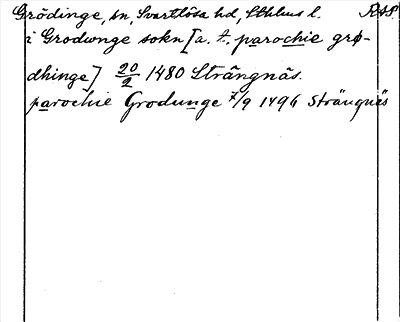 Grödinge, sn, Svartlösa hd, Sthlms l. RAP.
i Grodwnge sokn [a. t. parochie grø-
dhinge] 20/2 1480 Strängnäs.
parochie Grodunge 7/9 1496 Strängnäs